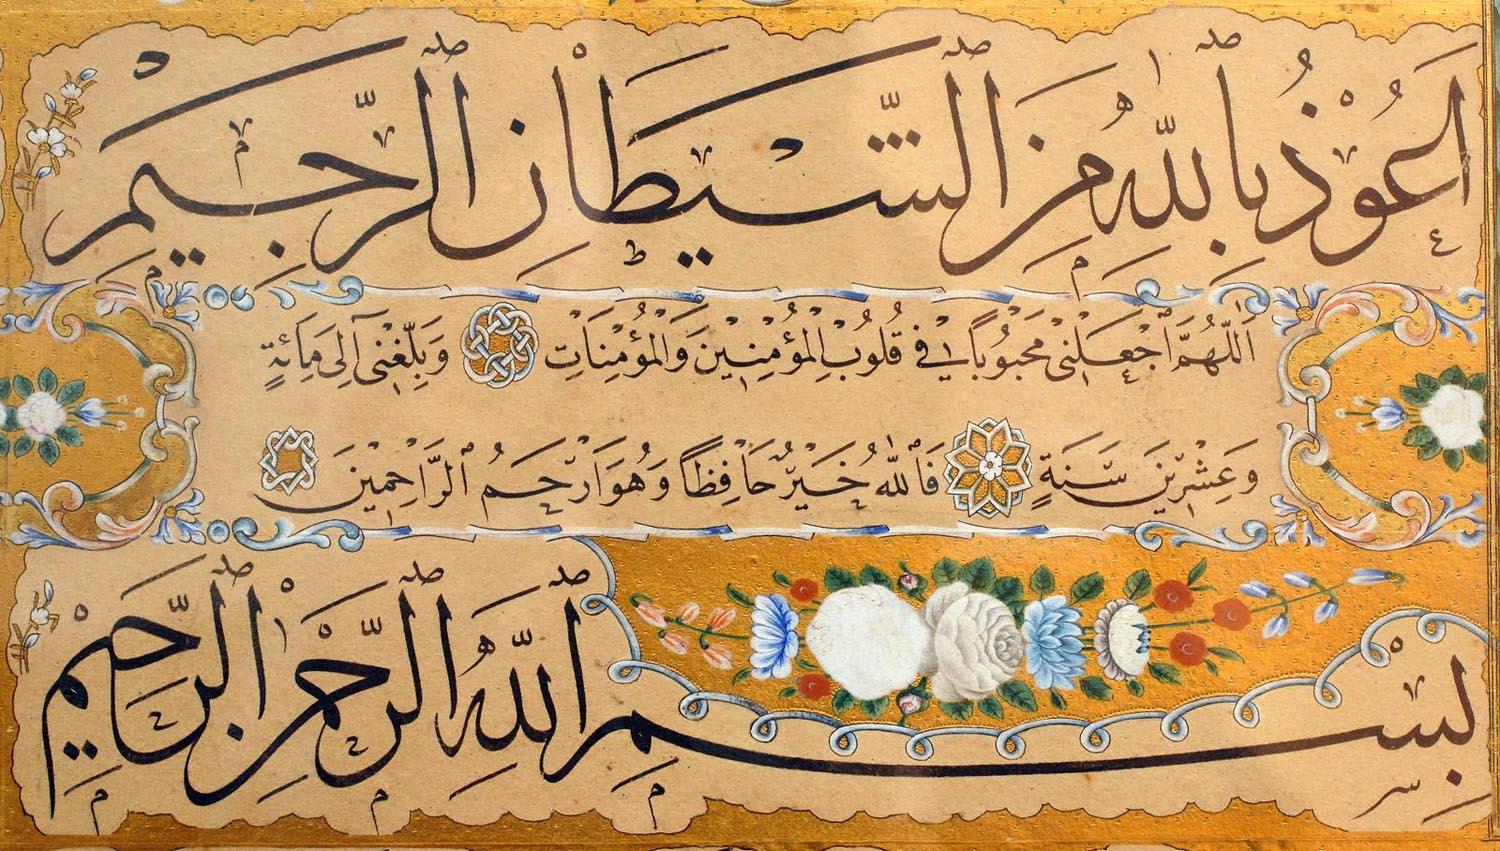 اَعُوْذُ بِاللّٰهِ مِنَ الشَّيْطَانِ الرَّجِيْمِ
اَللّٰهُمَّ اجْعَلْنِيْ مَحْبُوْبًا فِيْ قُلُوْبِ الْمُؤْمِنِيْنَ وَالْمُؤْمِنَاتِ وَبَلِّغْنِيْ اِلٰى مِائَةٍ
وَعِشْرِيْنَ سَنَةٍ فَاللّٰهُ خَيْرٌ حَافِظًا وَهُوَ اَرْحَمُ الرَّاحِمِيْنَ
بِسْمِ اللّٰهِ الرَّحْمٰنِ الرَّحِيْمِ